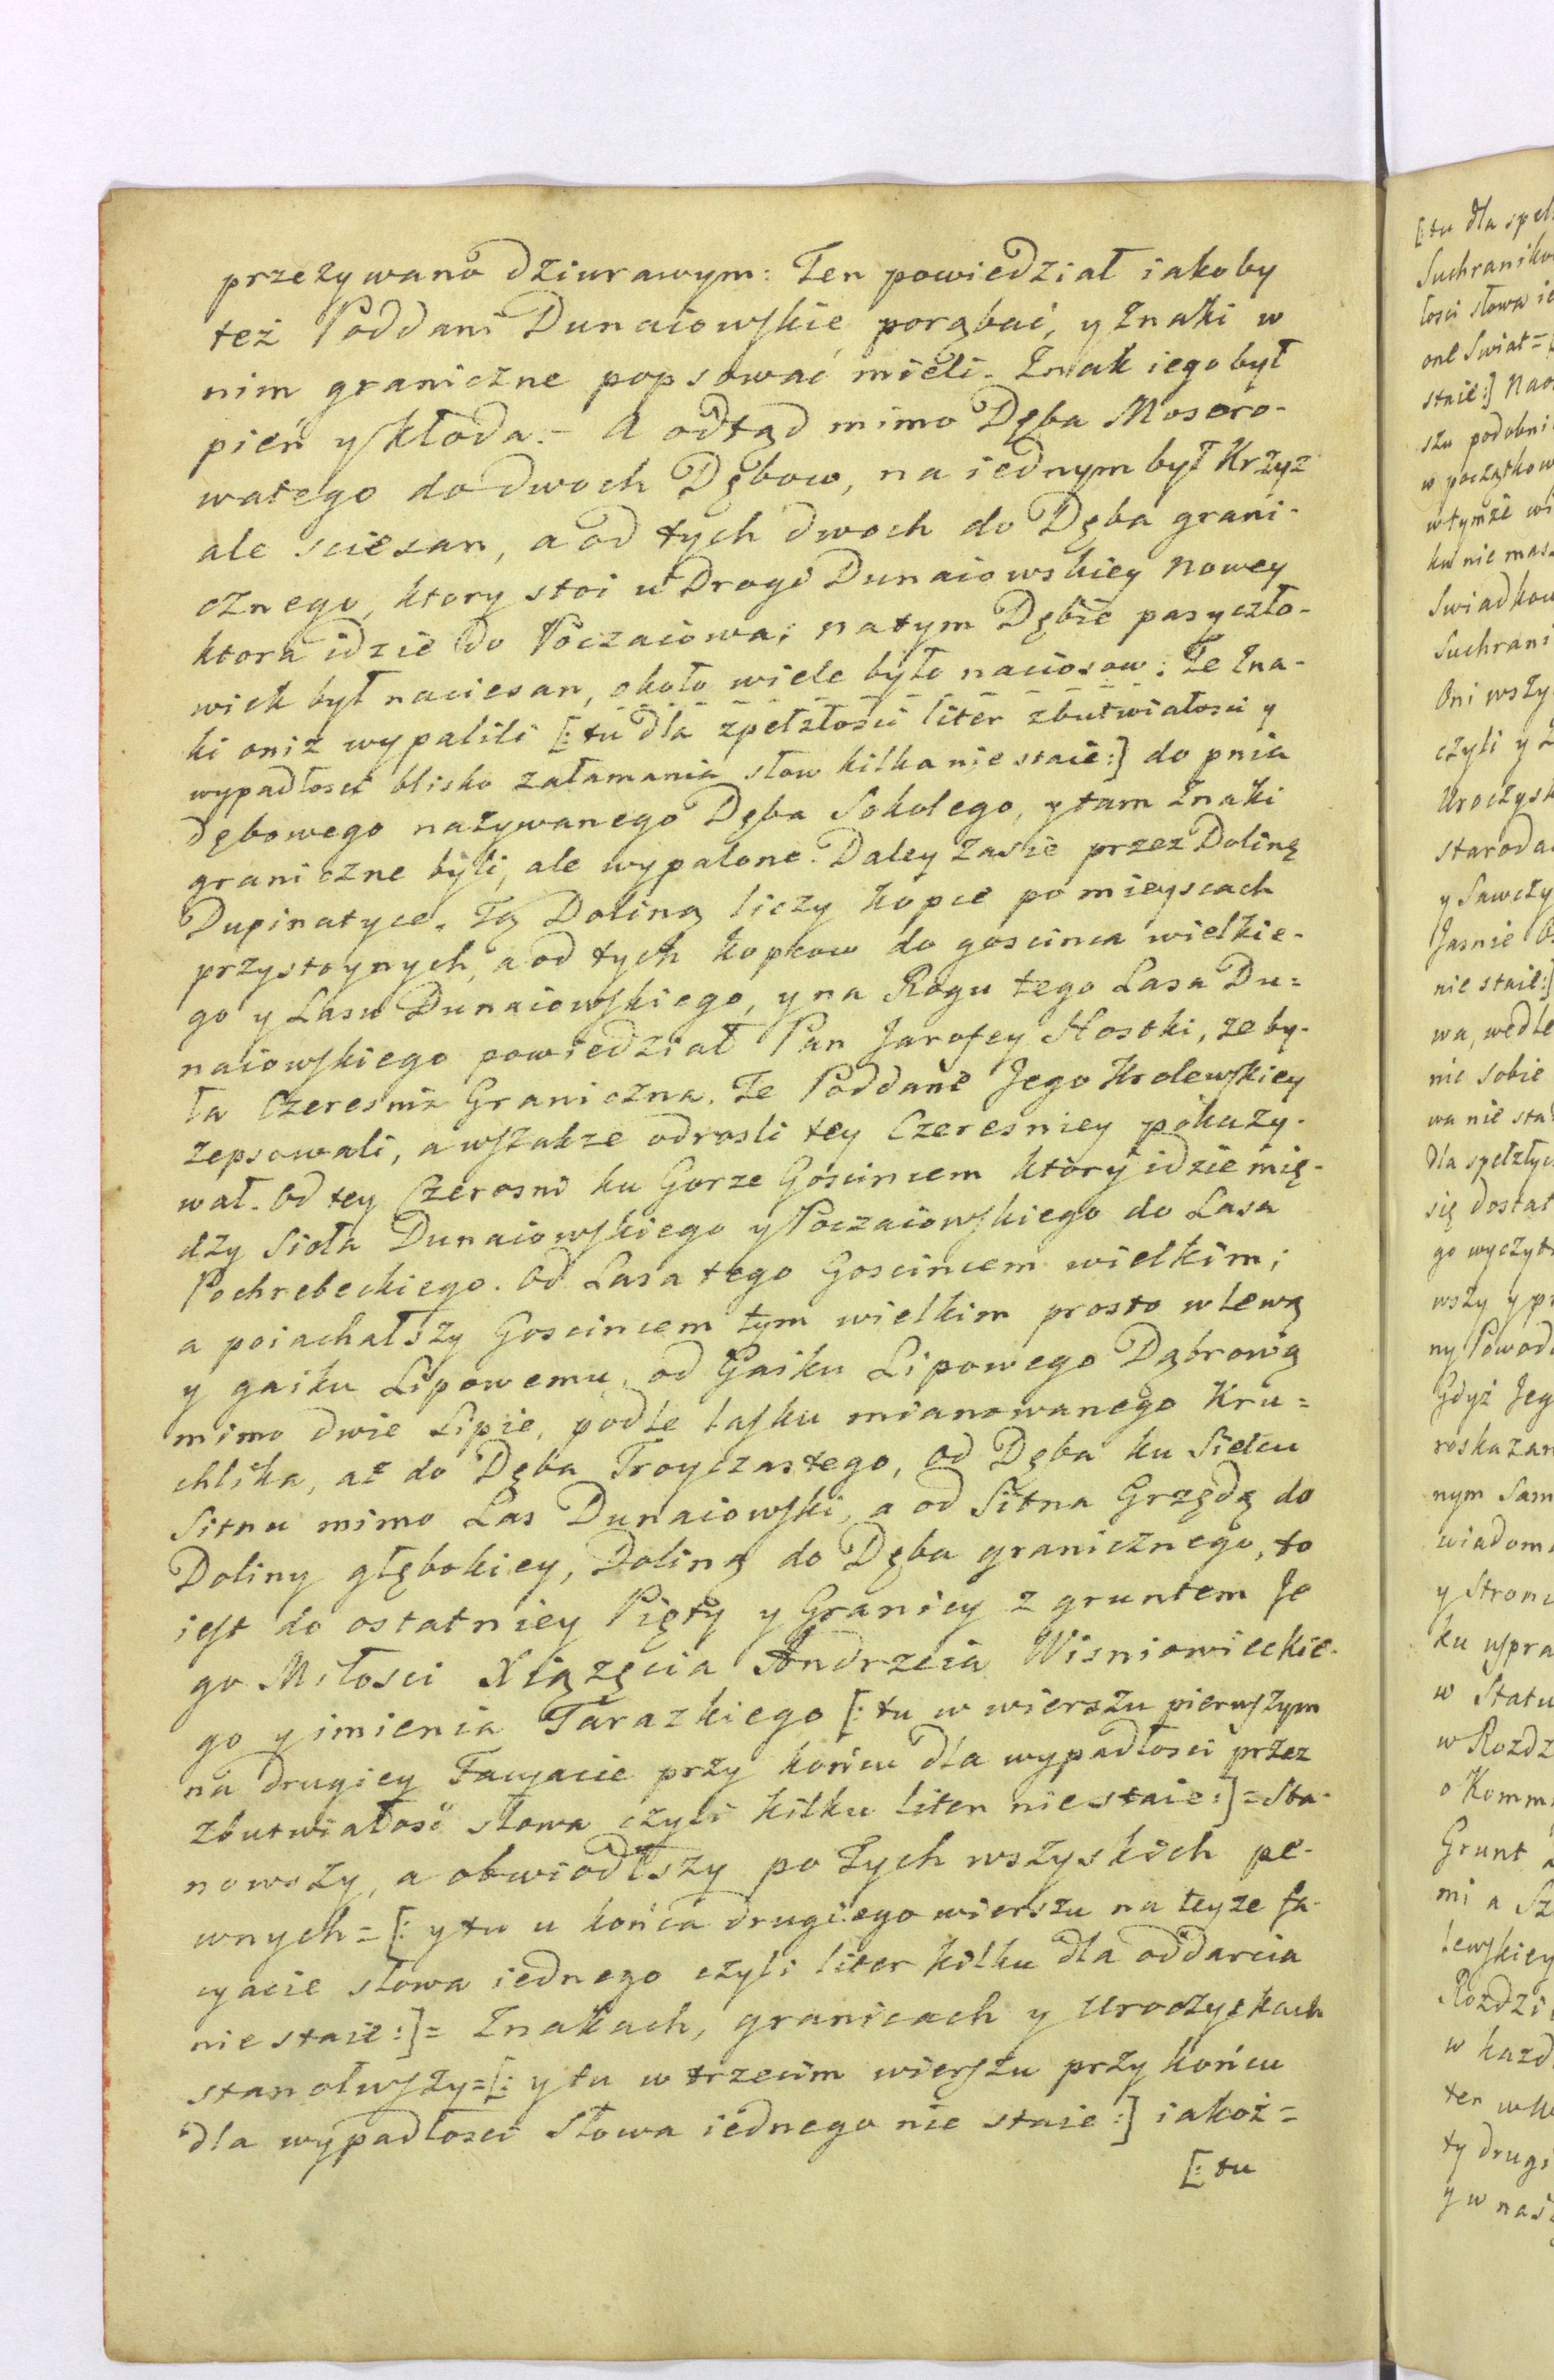 przezywano dziurawym: Ten powiedział iakoby
też Poddani Dunaiowskie porąbać, y Znaki w
nim graniczne popsować mieli. Znak iego był
pień y kłoda.- A odtąd mimo Dęba Mosoro-
watego do dwoch Dębow, na iednym był Krzyz
ale sciesan, a od tych dwoch do Dęba grani-
cznego, ktory stoi u Drogi Dunaiowskiey nowey
ktora idzie do Poczaiowa; na tym Dębie pasyczło-
wiek był naciesan, około wiele było naciosow: Te Zna-
ki oniż wypalili [: tu dla zpełzłości liter zbutwiałosci y
wypadłosci blisko załamania słow kilka nie staie:] do pnia
dębowego nazywanego Dęba Sokolego, y tam Znaki
graniczne byli, ale wypalone. Daley zasie przez Dolinę
Dupinatyce. Tą Doliną liczy kopce po mieyscach
przystoynych, a od tych kopcow do goscinca wielkie-
go y Lasu Dunaiowskiego, y na Rogu tego Lasa Du=
naiowskiego powiedział Pan Jarofey Hostki, ze by-
ła Czeresnia Graniczna. Te Poddane Jego Krolewskiey
zepsowali, a wszakze odrosli tey Czeresniey pokazy-
wał. Od tey Czerosni ku Gorze Goscincem ktory idzie mię-
dzy Sioła Dunaiowskiego y Poczaiowskiego do Lasa
Pochrebeckiego. Od Lasa tego Goscincem wielkim;
a poiachałszy Goscincem tym wielkim prosto w lewą
y gaiku Lipowemu, od Gaiku Lipowego Dąbrową
mimo dwie Lipie, podle lasku mianowanego Kru=
chlika, aż do Dęba Troyczastego, od Dęba ku Sielcu
Sitnu mimo Las Dunaiowski, a od Sitna Grzędą do
Doliny głębokiey, Doliną do Dęba granicznego, to
iest do ostatniey Pięty y Granicy z gruntem Je
go Miłosci Xiążęcia Andrzeia Wisniowieckie-
go y imienia Tarazkiego [: tu w wierszu pierwszym
na drugiey Facyacie przy końcu dla wypadłosci przez
zbutwiałość słowa czyli kilku liter nie staie:]= Sta-
nowszy, a obwiodłszy po tych wszyskich pe-
wnych= [: y tu u końca drugiego wierszu na teyze fa-
cyacie słowa iednego czyli liter kilku dla oddarcia
nie staie:]= Znakach, granicach y Uroczyskach
stanołwszy=[: y tu w trzecim wierszu przy końcu
dla wypadłosci Słowa iednego nie staie:] iakoż=
[: tu